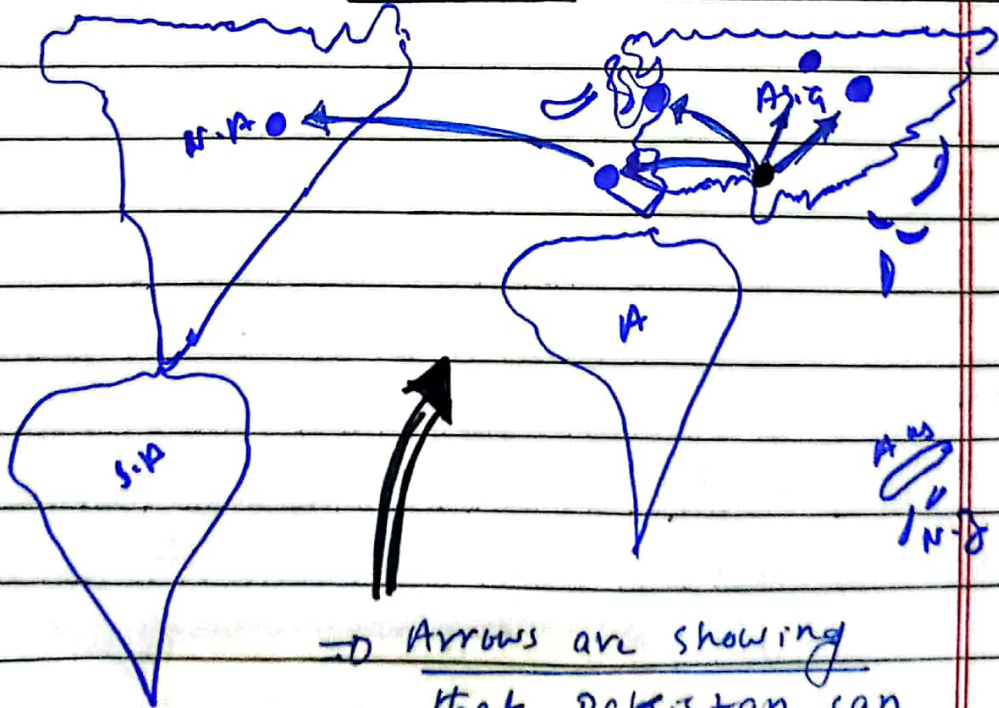 Asia
N.A
A
S.A
A us
N-Z
=> Arrows are showing
that Pakistan can